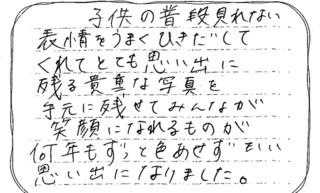 子供の普段見れない
表情をうまくひきだして
くれてとても思い出に
残る貴重な写真を
手元に残せてみんなが
笑顔になれるものが
何年もずっと色あせずいい
思い出になりました。